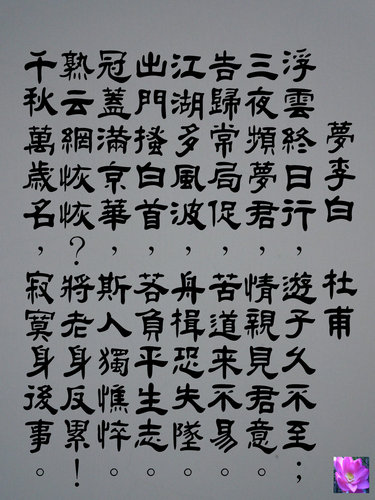 夢李白 杜甫
浮雲終日行，遊子久不至；
三夜頻夢君，情親見君意。
告歸常局促，苦道來不易。
江湖多風波，舟揖恐失墜。
出門搔白首，若負平生志。
冠蓋滿京華，斯人獨憔悴。
熟云網恢恢？將老身反累！
千秋萬歲名，寂寞身後事。